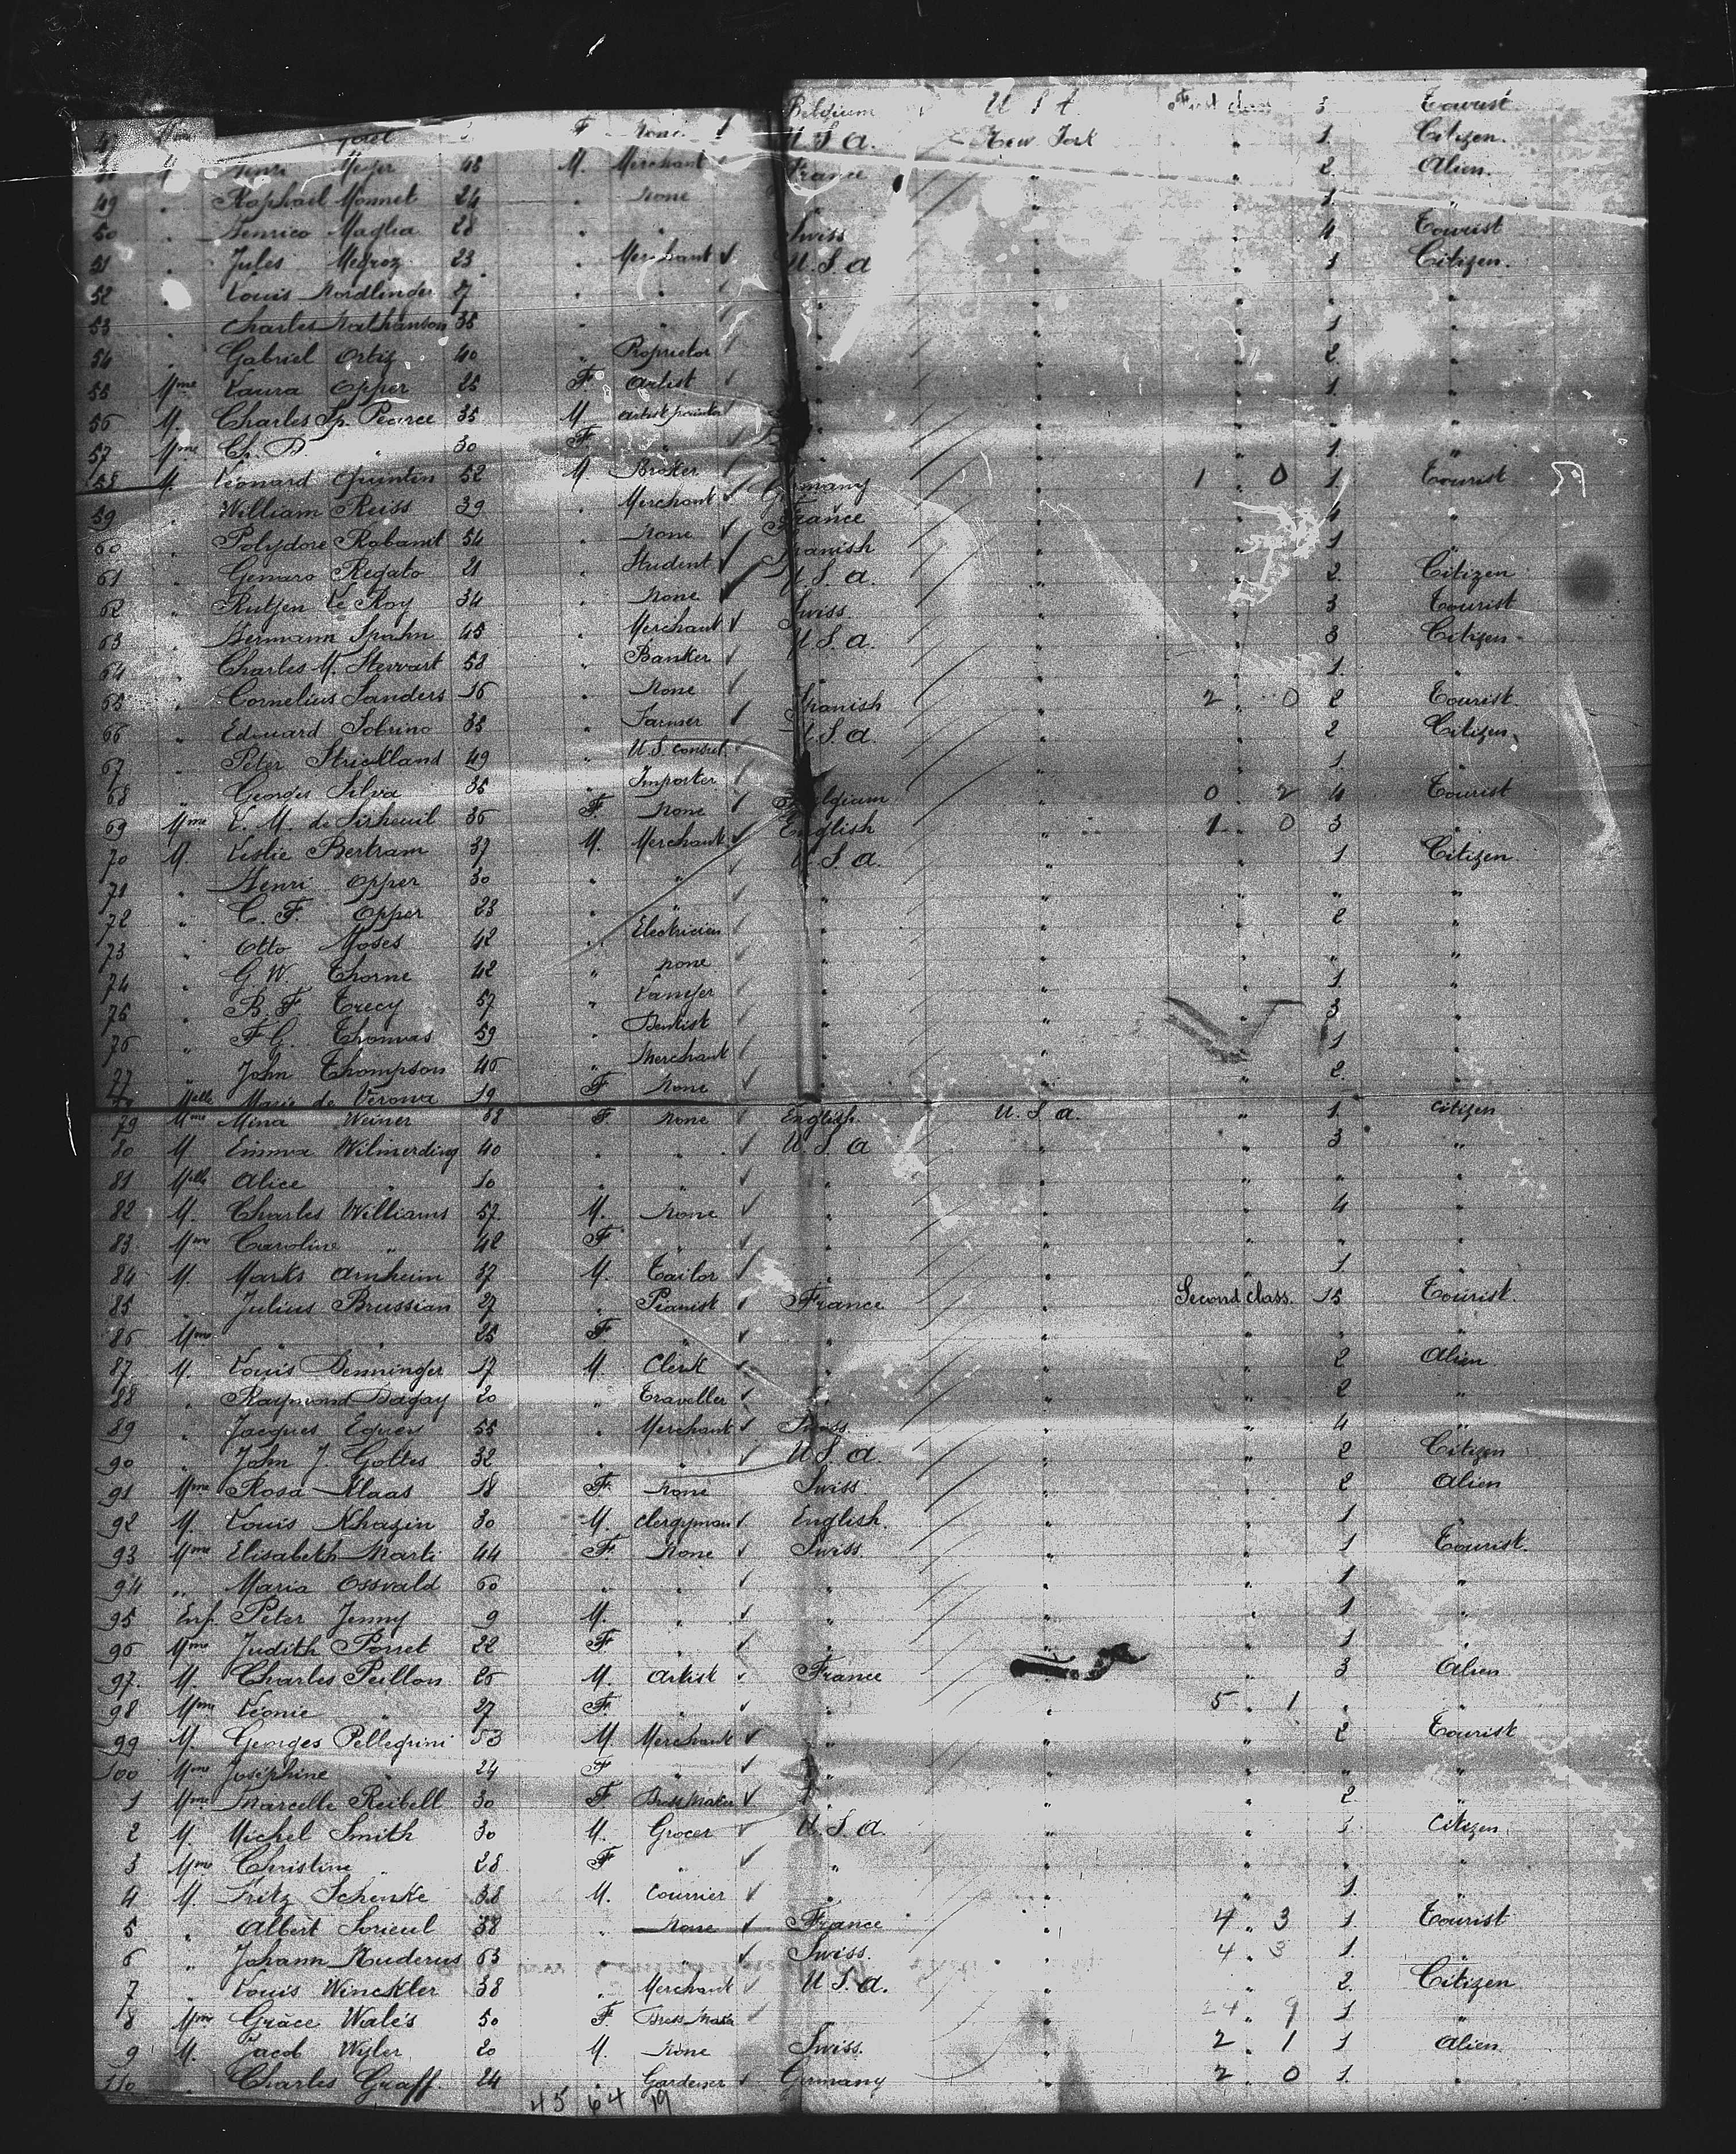 Belgium U S A First class 3 Tourist
Henri Meyer 45 M. Merchant U S A. New York " 1 Citizen.
49 " Raphael Monnet 24 " None France " " 2 Alien.
50 " Henrico Maglia 28 " " " " " 1 "
51 " Jules Megroz 23 " Merchant Swiss " " 4 Tourist
52 " Louis Nordlinger " " U.S.A " " 1 Citizen.
53 " Charles Nathanson 35 " " " " " " "
54 " Gabriel Ortiz 40 " Proprietor " " " 1 "
55 Mme Laura Opper 25 F. Artist " " " 2 "
56 M. Charles Sp. Pearce 35 M. Artist painter " " " 1. "
57 Mme Ch. P. " 30 F. " " " " " "
58 M. Léonard Quintin 52 M. Broker " " " 1. "
59 " William Reiss 39 " Merchant Germany " 1 " 0 1 Tourist
60 " Polydore Rabanit 54 " None France " " 4 "
61 " Gennaro Regato 21 " Student Spanish " " 1 "
62 " Rutsen Le Roy 34 " None U.S.a. " " 2. Citizen
63 " Hermann Spahn 45 " Merchant Swiss " " 3 Tourist
64 " Charles M. Stewart 58 " Banker U.S.a. " " 3 Citizen
65 " Cornelius Sanders 16 " None " " " 1. "
66 " Edouard Sobrino 35 " Farmer Spanish " 2 " 0 2 Tourist
67 " Peter Strickland 49 " U.S. consul U.S.a. " " 2 Citizen
68 " Georges Silva 35 " Importer " " " 1. "
69 Mme L. M. de Sirheuil 36 F. None Belgium " 0 " 2 4 Tourist
70 M. Leslie Bertram 37 M. Merchant English " 1 " 0 3 "
71 " Henri Opper 30 " " U.S.a. " " 1 Citizen
72 " C. F. Opper 23 " " " " " " "
73 " Otto Moses 42 " Electricien " " " 2 "
74 " G. W. Thorne 42 " none " " " " "
75 " B. F. Trecy 57 " Lawyer " " " 1. "
76 " F. G. Thomas 59 " Dentist " " " 3 "
77 " John Thompson 46 " Merchant " " " 1 "
Melle Marie de Verona 19 F None " " " 2. "
79 Mme Mina Weiner F. None English. U.S.a. " 1. Citizen
80 M. Emma Wilmerding 40 " " U.S.A " " 3 "
81 Melle Alice " 10 " " " " " " "
82 M. Charles Williams 57 M. None " " " 4 "
83 Mme Caroline " 42 F. " " " " " "
84 M. Marks Arnheim 37 M. Tailor " " " 1 "
85 " Julius Brussian 27 " Pianist France " Second class. 15 Tourist.
86 Mme " " 25 F. " " " " " "
87 M. Louis Denninger 17 M. Clerk " " " 2 Alien
88 " Raymond Dagay 20 " Traveller " " " 2 "
89 " Jacques Equey 55 " Merchant Swiss " " 4 "
90 " John J. Gottes 32 " " U.S.a. " " 2 Citizen
91 Mme Rosa Klaas 18 F. None Swiss " " 2 Alien
92 M. Louis Khazin 30 M. Clergyman English. " " 1 "
93 Mme Elisabeth Marti 44 F. None Swiss. " " 1 Tourist.
94 " Maria Ossvald 60 " " " " " 1 "
95 Enf. Peter Jenny 9 M. " " " " 1 "
96 Mme Judith Porret 22 F. " " " " 1 "
97. M. Charles Peillon 26 M. Artist France " " 3 Alien
98 Mme Léonie " 27 F. " " " 5 " 1 " "
99 M. Georges Pellegrini 53 M. Merchant " " " 2 Tourist
100 Mme Joséphine " 24 F. " " " " " "
1 Mme Marcelle Reibell 30 F Dress Maker " " " 2 "
2 M. Michel Smith 30 M. Grocer U.S.a. " " 1 Citizen
3 Mme Christine " 28 F. " " " " " "
4 M. Fritz Schenke 38 M. Courrier " " " 1. "
5 " Albert Sorieul 38 " None France " 4 " 3 1 Tourist
6 " Johann Nuderus 63 " " Swiss. " 4 " 3 1. "
7 " Louis Winckler 38 " Merchant U.S.a. " " 2. Citizen
8 Mme Grace Wales 50 F. Dress Maker " " 24 " 9 1 "
9 M. Jacob Wyler 20 M. None Swiss. " 2 " 1 1 Alien
110 " Charles Graff. 24 " Gardener Germany " 2 " 0 1. "
45 64 19